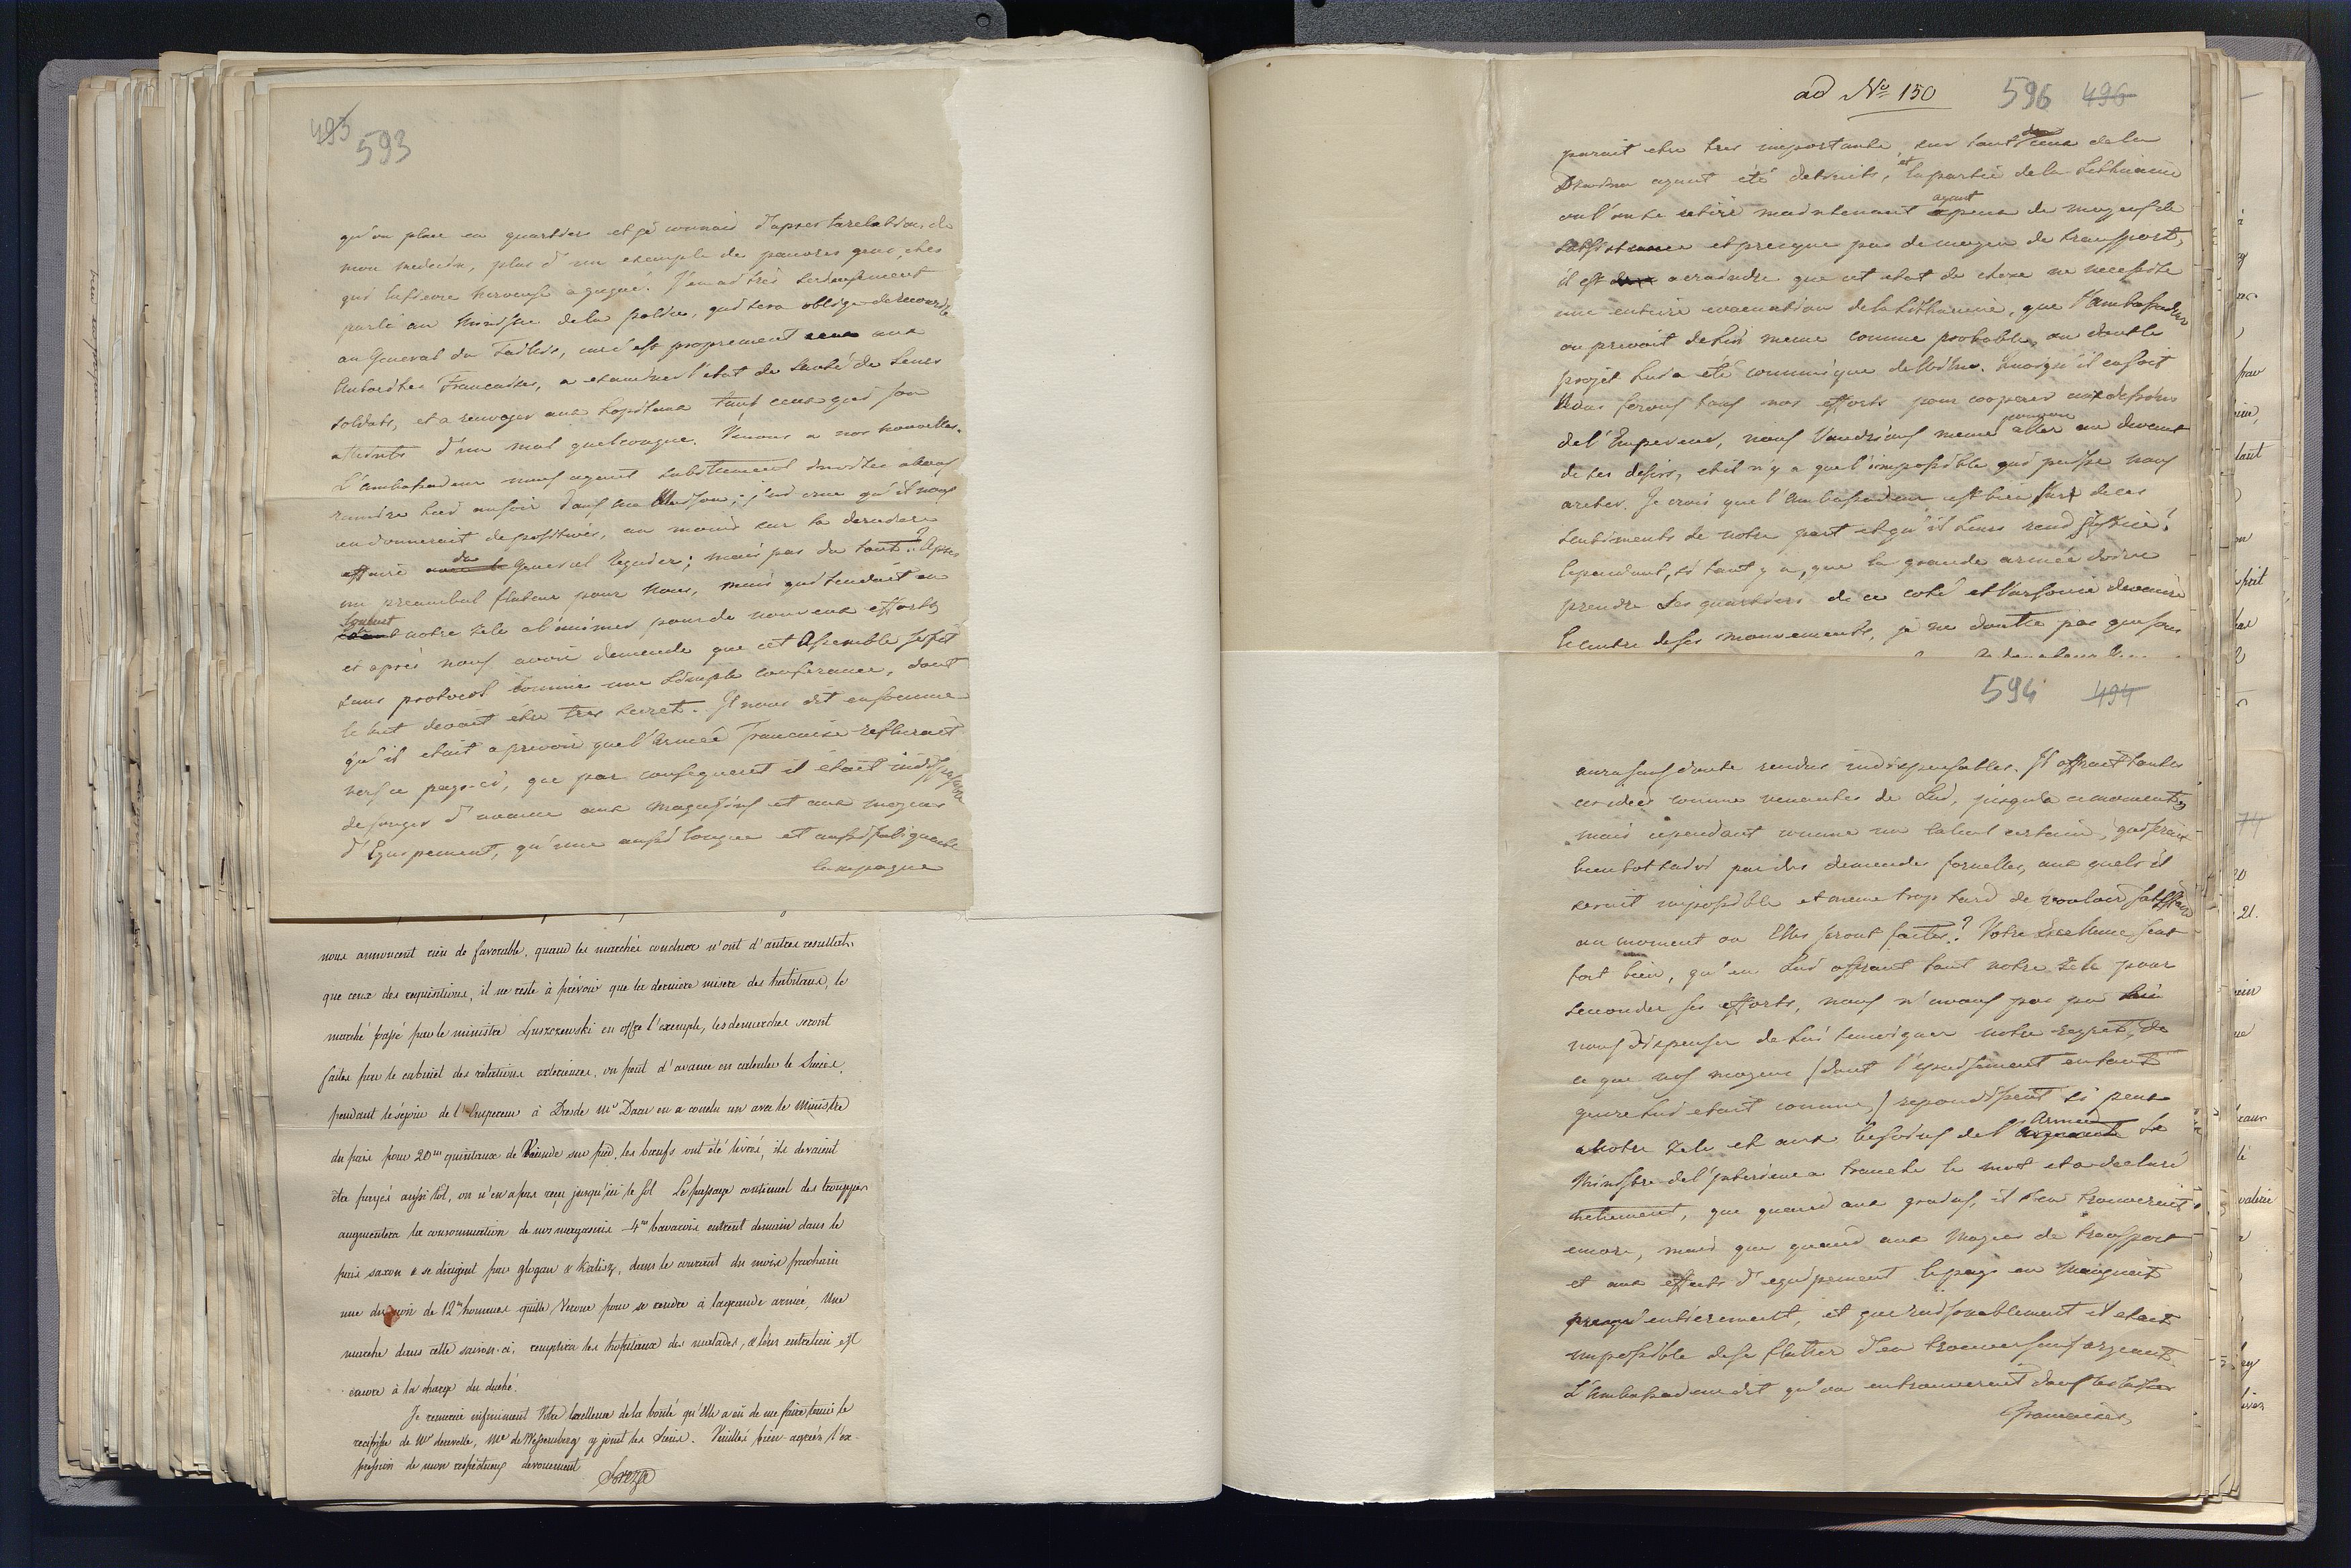 493 593
qu'on place en quartiers et je connais d'apres la relation de
mon medecin, plus d'un exemple de pauvres gens, chez
qui la fievre nerveuse a gagné. J'en ai très serieusement
parlé au Ministre de la police, qui sera obligé de recourir
au General du Taillis, car c'est proprement aux
Autorités Francaises, a examiner l'état de santé de leurs
soldats, et a renvoyer aux hopitaux tous ceux qui son
atteints d'un mal quelconque. Venons a nos nouvelles.
L'ambassadeur nous ayant subitement invités a nous
reunir hier au soir dans sa Maison; j'ai crue qu'il nous
en donnerait de positives, au moins sur la derniere
affaire du General Regnier; mais pas du tout! Apres
un preambul flateur pour nous, mais qui tendait en
louant notre zele a l'animer pour de nouveaux efforts
et après nous avoir demandé que cet Assemblé se fit
sans protocol comme une simple conferance, dont
le but devait être tres secret. Il nous dit en somme
qu'il etait a prevoir que l'Armée Francaise reflueroit
vers ce pays-ci, que par consequent il étoit indispensable
de songer d'avance aux magasins et aux moyens
d'Equipement, qu'une aussi longue et aussi fatiguante
campagne
nous annoncent rien de favorable, quand les marchés conclux n'ont d'autres resultats
que ceux des requisitions, il ne reste à prévoir que la derniere misere des habitans, le
marché passé par le ministre Łuszczewski en offre l'exemple, les demarches seront
faites par le cabinet des relations exterieures, on peut d'avance en calculer le succès.
pendant le séjour de l'Empereur à Dresde Mr Daru en a conclu un avec le Ministre
du païs pour 20m quintaux de Viande sur pied, les bœufs ont été livrés, ils devaient
être payés aussi tôt, on n'en a pas reçu jusqu'ici le sol. Le passage continuel des trouppes
augmentera la consommation de nos magasins 4m bavarois entrent demain dans le
païs saxon & se dirigent par glogau & Kalisz, dans le courant du mois prochain
une division de 12m hommes quitte Verone pour se rendre à la grande armée, Une
marche dans cette saison-ci, remplira les hopitaux des malades, & leur entretien est
encore à la charge du duché.
Je remercie infiniment Votre Excellence de la bonté qu'Elle a eü de me faire tenir le
recepisse de Mr Mr de Wessenberg y joint les Siens. Veuillés bien agréer l'ex-
pression de mon respectueux devouement
ad No 150 596 496
parait etre tres importante, car tous ceux de la
Dzwina ayant été detruits, et la partie de la Lithuanie
ou l'on se retire maintenant ayant peux de moyens de
subsistance et presque pas de moyen de transport,
il est a craindre que cet etat de chose ne necessite
une entiere evacuation de la Lithuanie, que l'ambassadeur
ou prevoit de lui meme comme probable, ou dont le
projet lui a été communique de Vilna. Quoiqu'il en soit
Nous ferons tous nos efforts pour cooperer aux desseins
de l'Empereur, nous voudrions meme pouvoir aller au devant
de ses desirs, et il n'y a que l'impossible qui puisse nous
areter. Je crois que l'Ambassadeur est bien sur de ces
sentiments de notre part et qu'il leurs rend justice!
Cependant, si tant y a, que la grande armée doive
prendre des quartiers de ce coté et Varsovie devenir
le centre de ses mouvements, je ne doutte pas que sous
594 494
aura sans doute rendus indispensables. Il offroit toutes
ces idées comme venantes de Lui, jusqu'a ce moment,
mais cependant comme un calcul certain, qui serait
bientot suivi par des demandes formelles, aux quels il
seroit impossible et meme trop tard de vouloir satisfaire
au moment ou Elles seront faites? Votre Excellence sent
fort bien, qu'en Lui offrant tout notre zele pour
seconder ses efforts, nous n'avons pas pu
nous dispenser de lui temoigner notre regret, de
ce que nos moyens (dont l'epuisement en tout
genre lui etait connu,) repondissent si peux
a notre zele et aux besoins de l'Armée Le
Ministre de l'interieur a tranché le mot et a declaré
nettement, que quand aux grains, il s'en trouveroit
encore, mais que quand aux Moyens de transport
et aux effects d'equipement le pays en manquait
presqu'entierement, et que raisonablement il etait
impossible de se flatter d'en trouver sans argent.
L'Ambassadeur dit qu'on en trouverait dans les
francaises